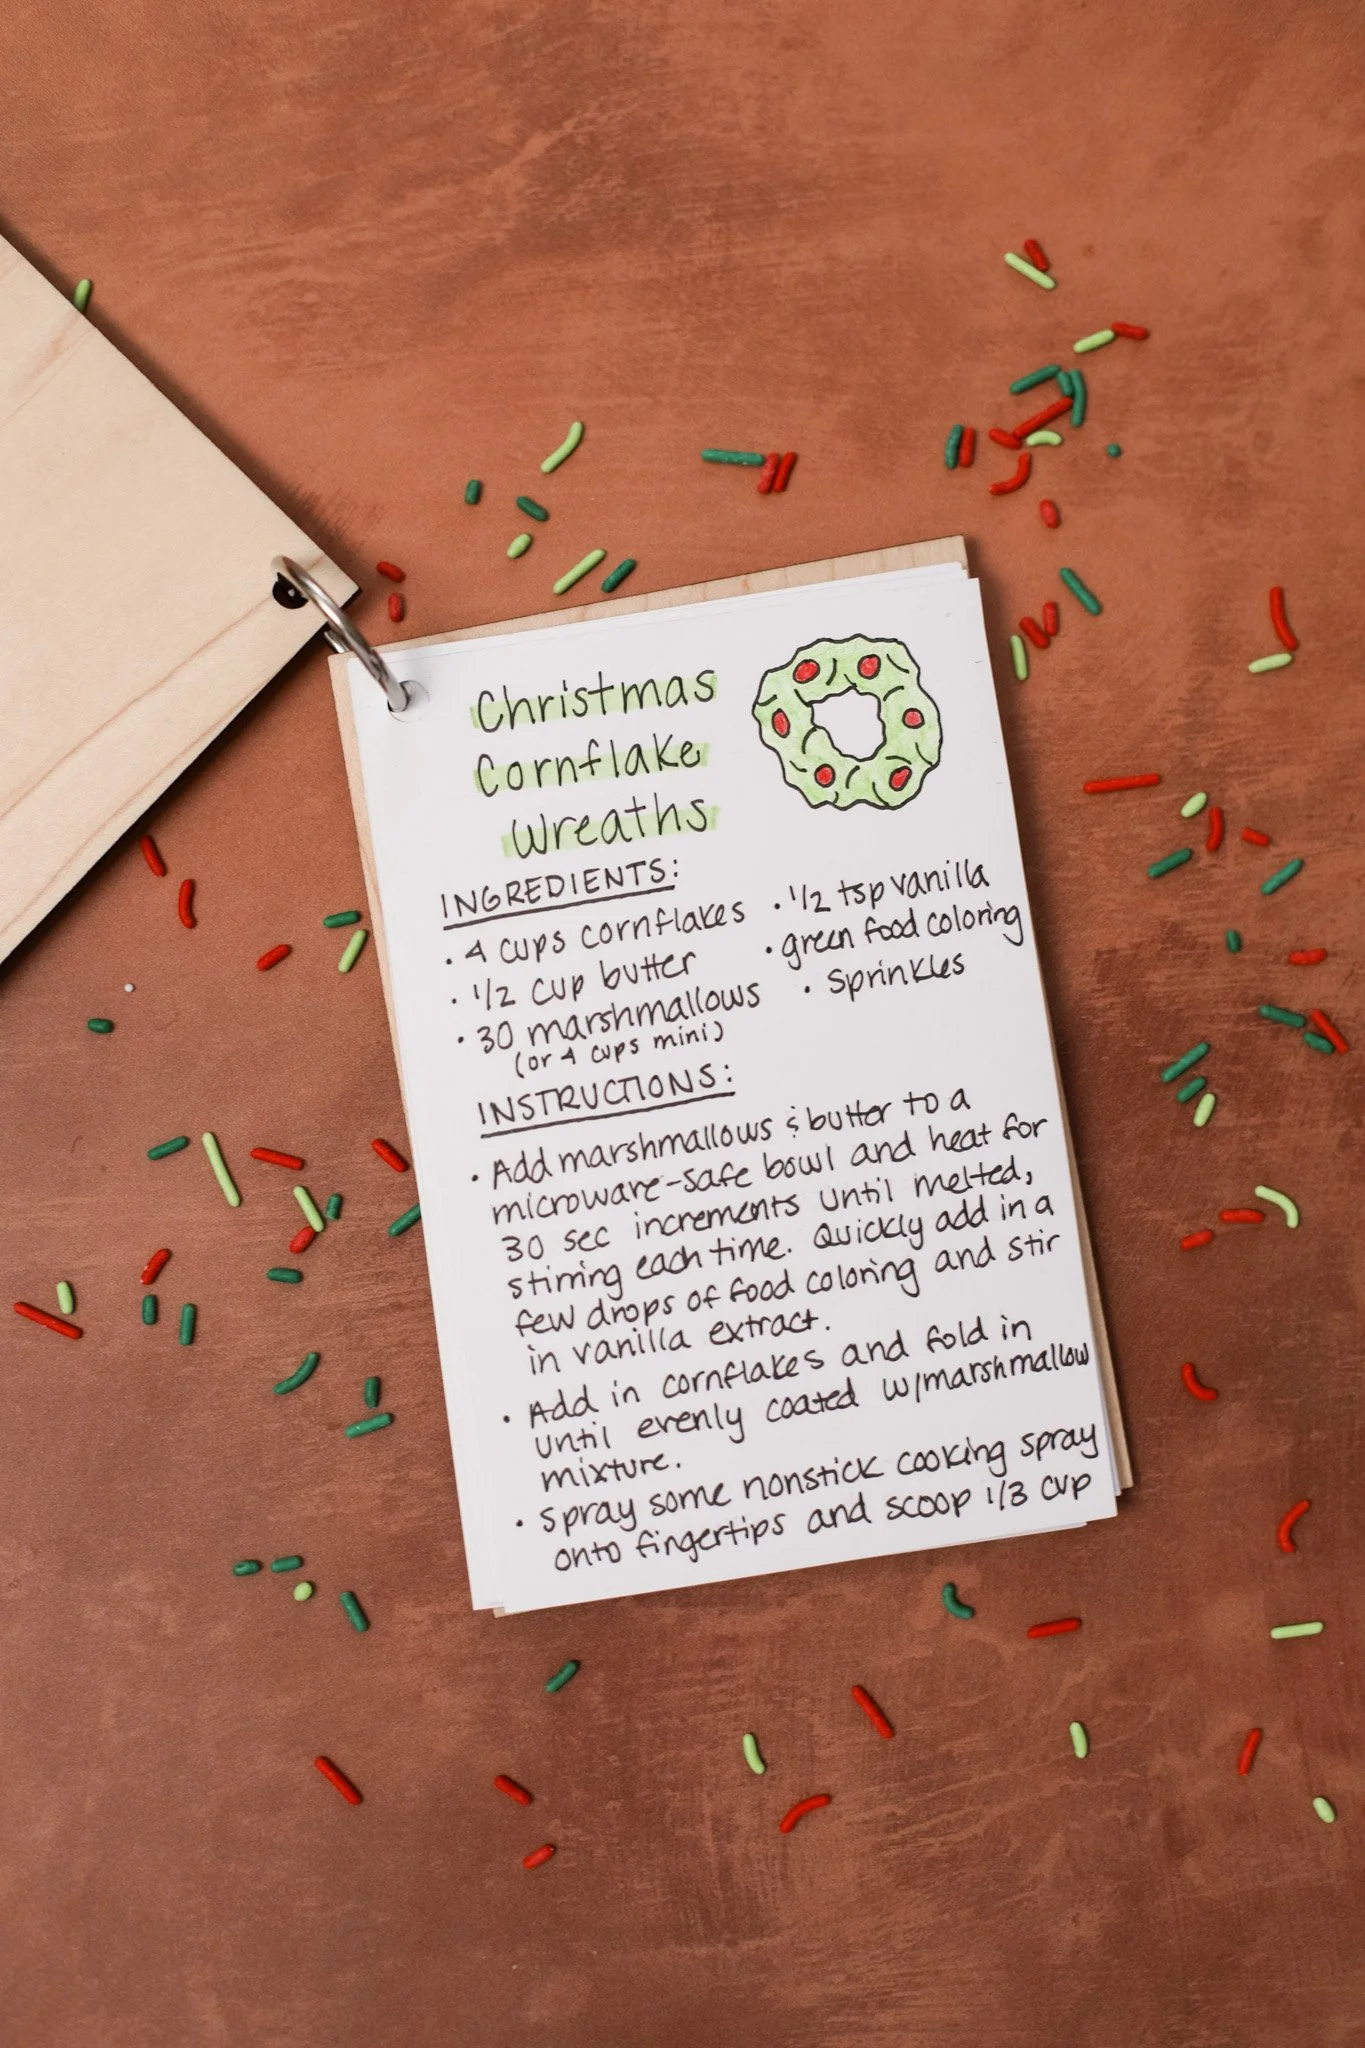 Christmas
Cornflake
Wreaths
INGREDIENTS:
· 4 cups cornflakes
· 1/2 cup butter
· 30 marshmallows
(or 4 cups mini)
· 1/2 tsp vanilla
· green food coloring
· sprinkles
INSTRUCTIONS:
· Add marshmallows & butter to a
microware-safe bowl and heat for
30 sec increments until melted,
stirring each time. Quickly add in a
few drops of food coloring and stir
in vanilla extract.
· Add in cornflakes and fold in
until evenly coated w/marshmallow
mixture.
· Spray some nonstick cooking spray
onto fingertips and scoop 1/3 cup